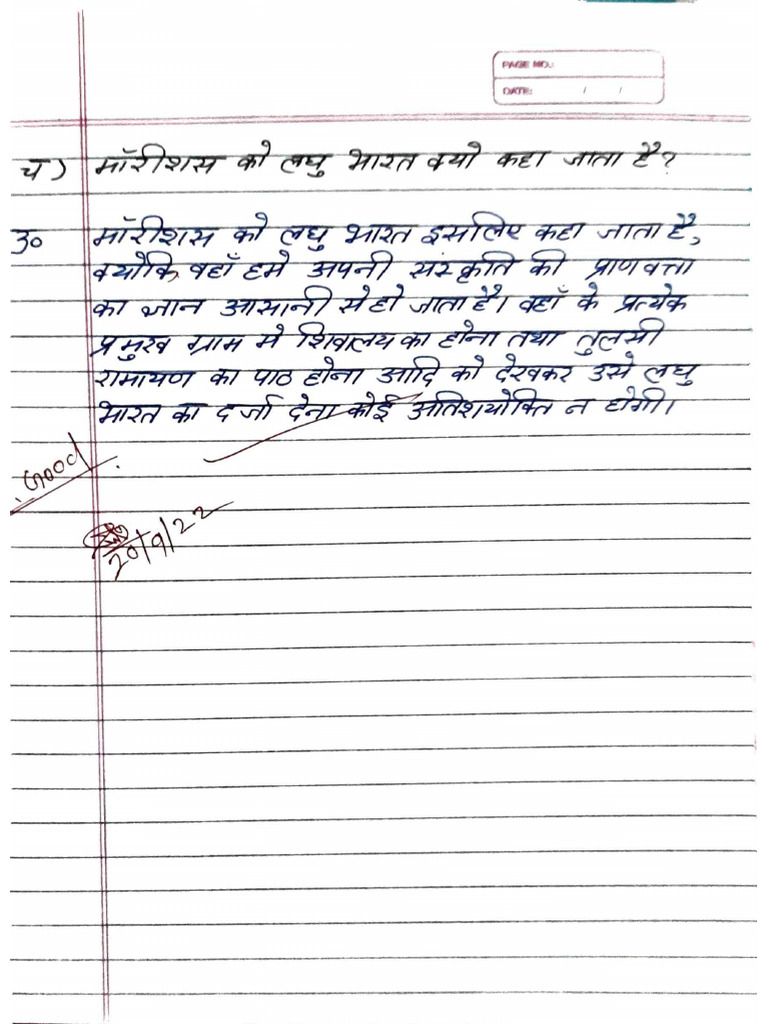 PAGE NO.:
DATE: / /
च) मॉरीशस को लघु भारत क्यो कहा जाता है?
उ० मॉरीशस को लघु भारत इसलिए कहा जाता है,
क्योकि वहाँ हमे अपनी संस्कृति की प्राणवत्ता
का ज्ञान आसानी से हो जाता है। वहाँ के प्रत्येक
प्रमुख ग्राम मे शिवालय का होना तथा तुलसी
रामायण का पाठ होना आदि को देखकर उसे लघु
भारत का दर्जा देना कोई अतिशयोक्ति न होगी।
Good
20/9/22